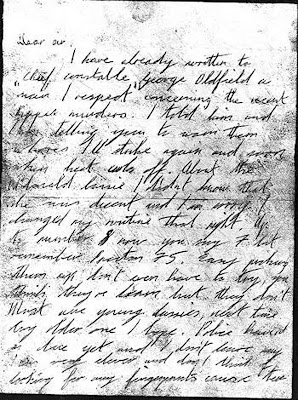 Dear sir,
I have already written to
chief constable "George Oldfield a
man I respect" concerning the recent
Ripper murders. I told him and
I telling you to warn them
whores I'll strike again and soon
when heat cools off. About the
lassie I didn't know that
she was decent and I am sorry I
changed my routine that night. Up
to number 8 now you say 7 but
remember Preston 75. Easy picking
them up don't even have to try, you
think they're learn but they don't
Most are young lassies, next time
try older one I hope. Police haven't
a clue yet and I don't leave any
I am very clever and don't think of
looking for any fingerprints cause there